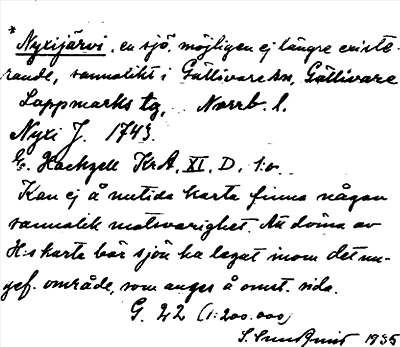 * Nyxijärvi, en sjö, möjligen ej längre existe-
rande, sannolikt i Gällivare sn, Gällivare
Lappmarks tg, Norrb. l.
Nyxi J. 1743.
E. Hackzell KrA, XI, D, 1:a
Kan ej å nutida karta finna någon
sannolik motsvarighet. Att döma av
H:s karta bör sjön ha legat inom det un-
gef. område, som anges å omst. sida.
G. 22 (1:200.000)
S. Sundqvist 1935